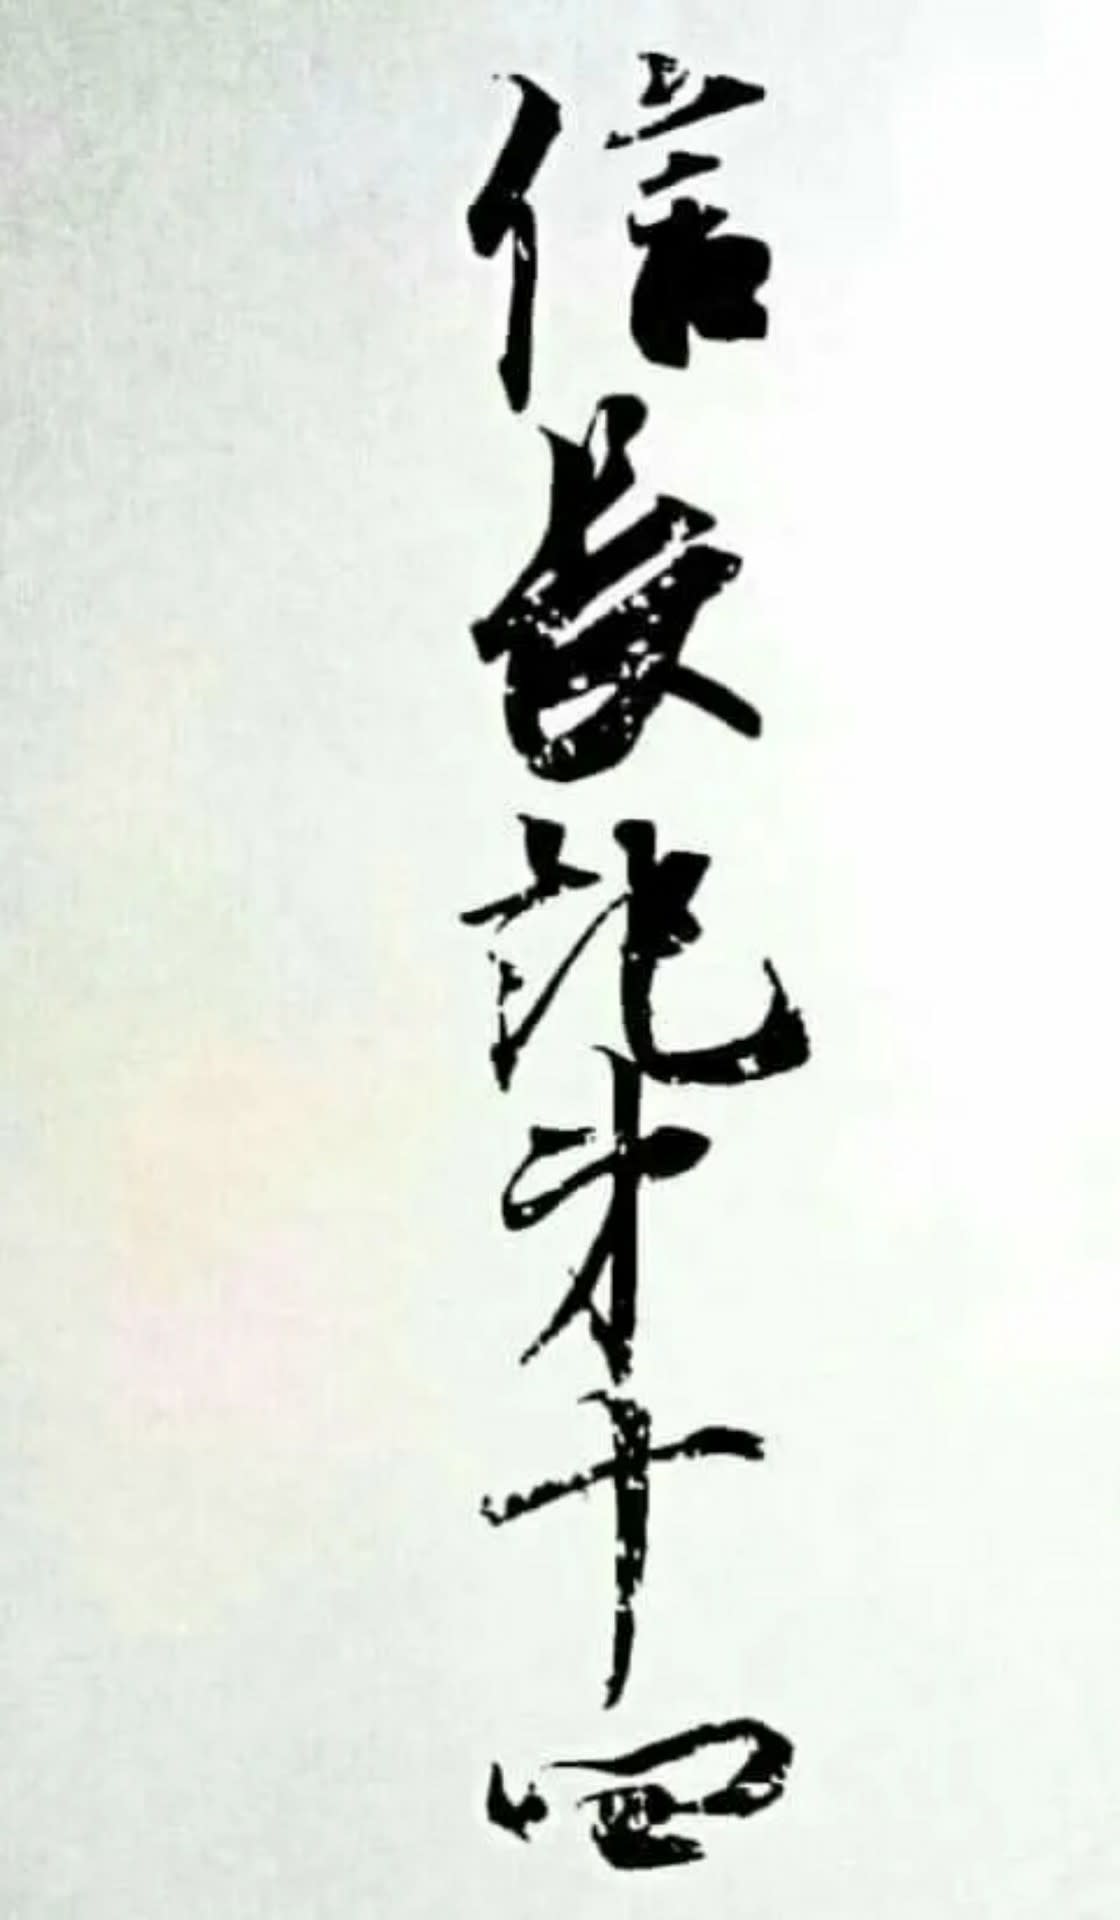 信長記才十四